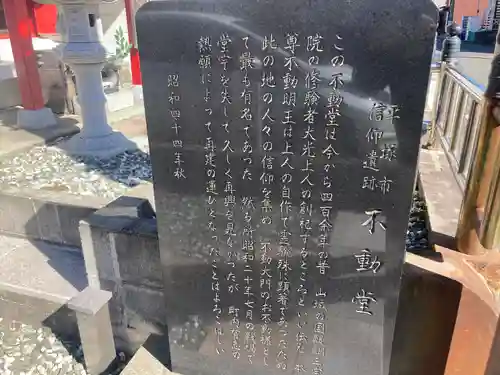 平塚市
信仰遺跡
不動堂
この不動堂は今から四百余年の昔
院の修験者大光上人の創祀するところといい伝
尊不動明王は上人の自作で霊験殊に顕著であったため
此の地の人々の信仰を集め 不動大門のお不動様とし
て最も有名であった 然る所昭和二十年七月の戦禍で
堂宇を失して久しく再興を見なかったが 町内有志の
熱願によって再建の運びとなったことはよろこばしい
昭和四十四年秋